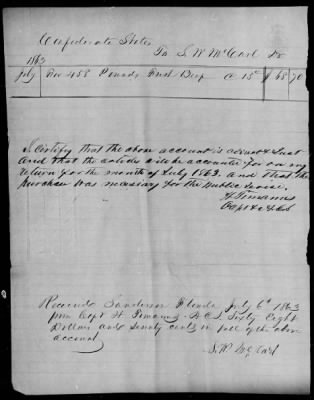 Confederate States
To S. W. McCarl Dr
1863
July For 458 Pounds Fresh Beef @ 15c $ 68 70
I certify that the above account is correct & Just
and that the articles will be accounted for on my
return for the month of July 1863. and that the
purchase was necessary for the Public Service.
H Timanus
Capt & ACS
Received Sanderson Florida July 6th 1863
from Capt H Timanus A.C.S. Sixty Eight
Dollars and Seventy cents in full of the above
account
S. W. McCarl